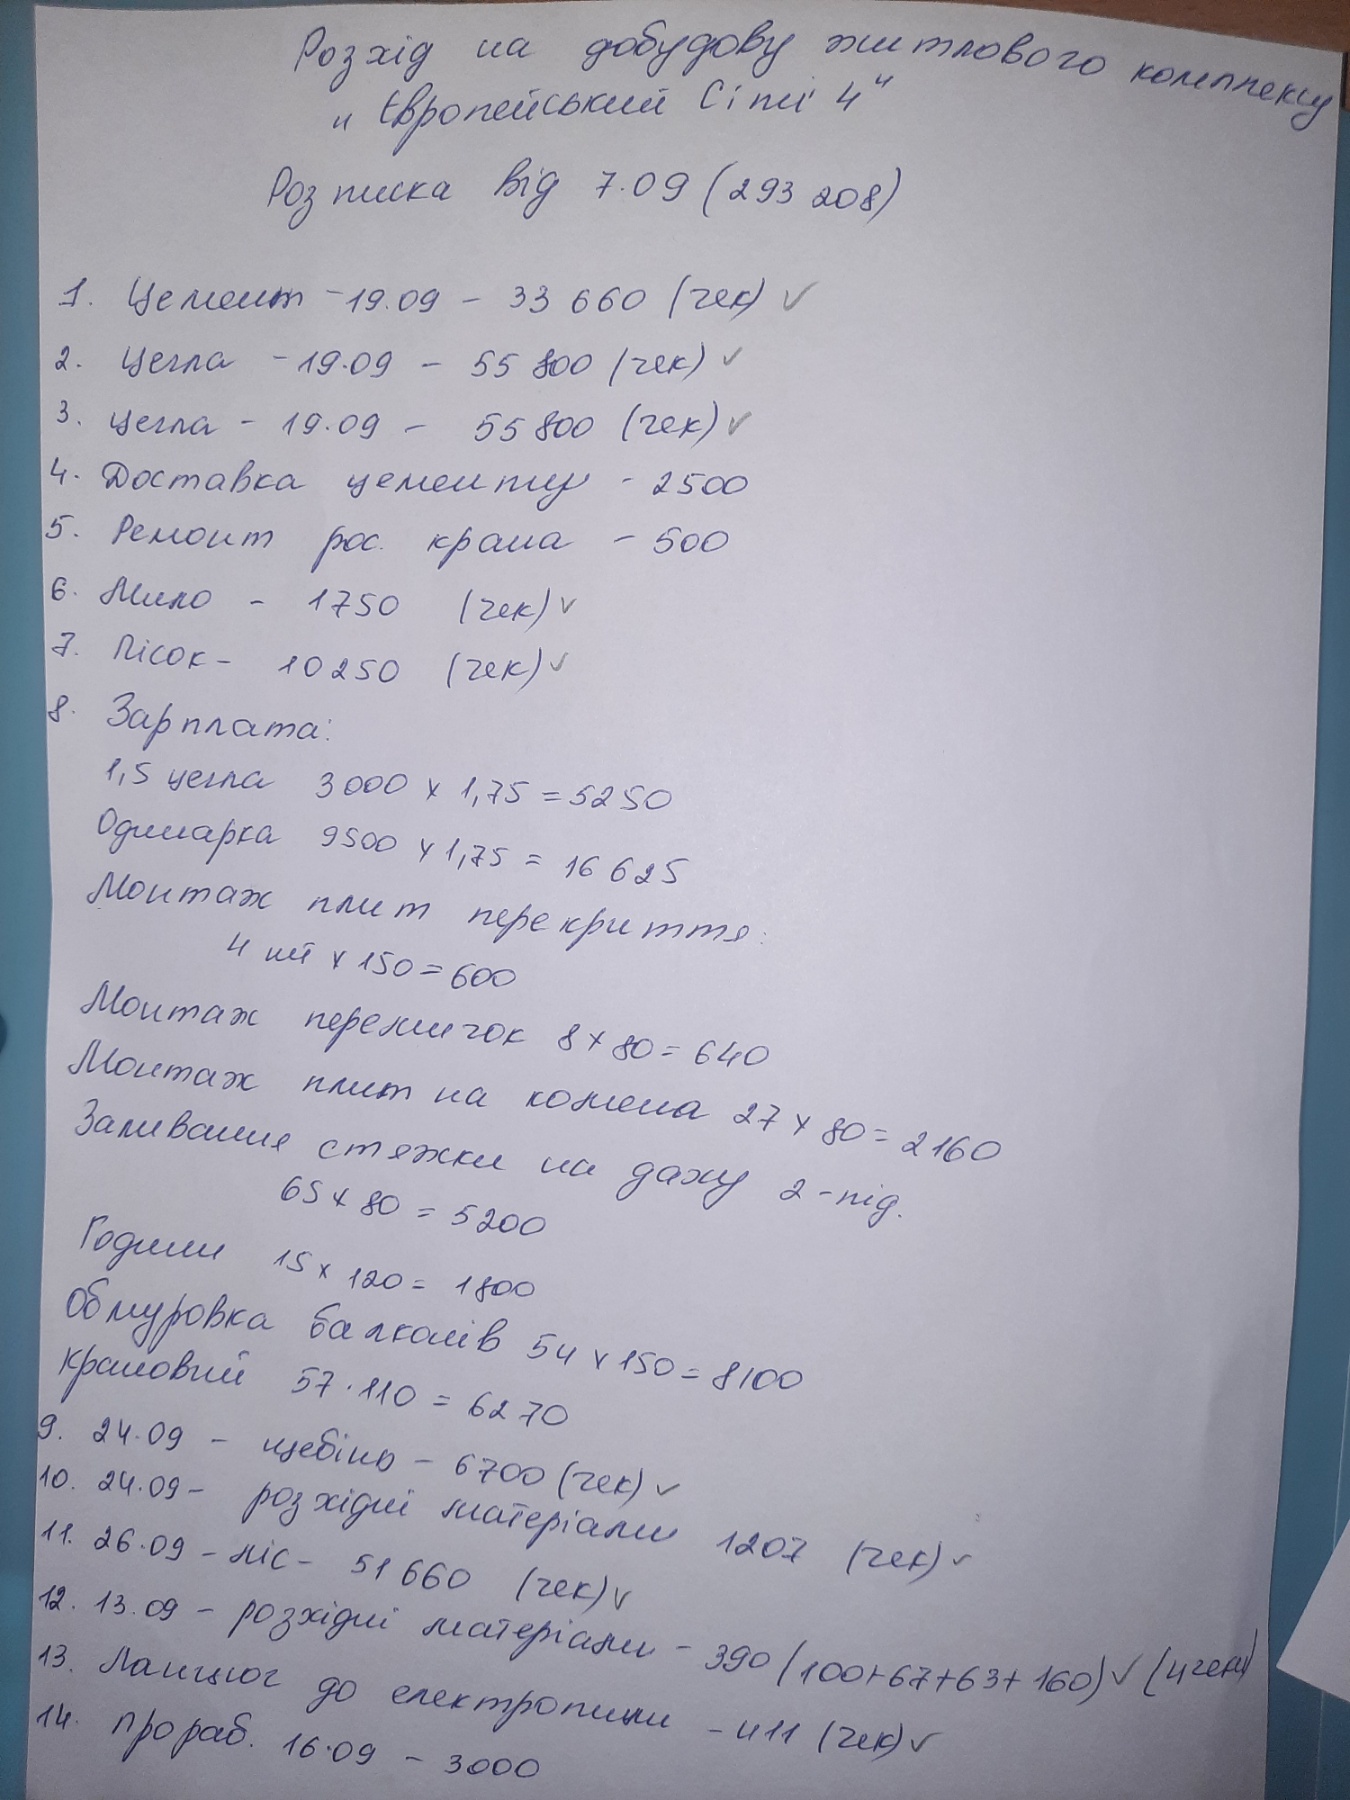 Розхід на добудову житлового комплексу
"Європейський Сіті 4"
Розписка від 7.09 (293 208)
1. Цемент - 19.09 - 33 660 (чек) ✓
2. Цегла - 19.09 - 55 800 (чек) ✓
3. Цегла - 19.09 - 55 800 (чек) ✓
4. Доставка цементу - 2500
5. Ремонт рос. крана - 500
6. Мило - 1750 (чек) ✓
7. Пісок - 10250 (чек) ✓
8. Зарплата:
1,5 цегла 3000 x 1,75 = 5250
Одинарка 9500 x 1,75 = 16 625
Монтаж плит перекриття:
4 шт x 150 = 600
Монтаж перемичок 8 x 80 = 640
Монтаж плит на комена 27 x 80 = 2160
Заливання стяжки на даху 2-під.
65 x 80 = 5200
Години 15 x 120 = 1800
Обмуровка балконів 54 x 150 = 8100
Крановий 57 · 110 = 6270
9. 24.09 - щебінь - 6700 (чек) ✓
10. 24.09 - розхідні матеріали 1207 (чек) ✓
11. 26.09 - ліс - 51 660 (чек) ✓
12. 13.09 - розхідні матеріали - 390 (100+67+63+160) ✓ (4 чеки)
13. Ланцюг до електропили - 411 (чек) ✓
14. Прораб. 16.09 - 3000